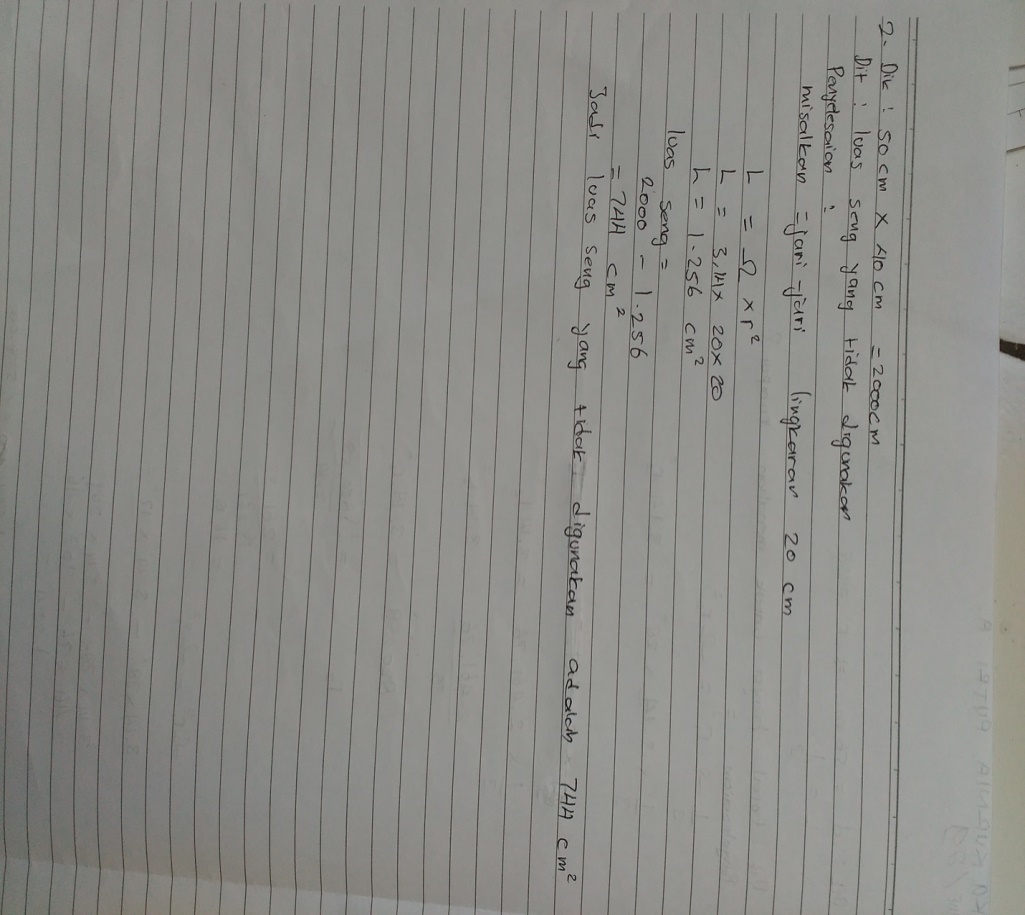 2. Dik : 50 cm × 40 cm = 2000cm
Dit : luas seng yang tidak digunakan
Penyelesaian :
misalkan = jari-jari lingkaran 20 cm
L = π × r²
L = 3,14× 20×20
L = 1.256 cm²
luas seng =
2000 - 1.256
= 744 cm²
Jadi luas seng yang tidak digunakan adalah 744 cm²